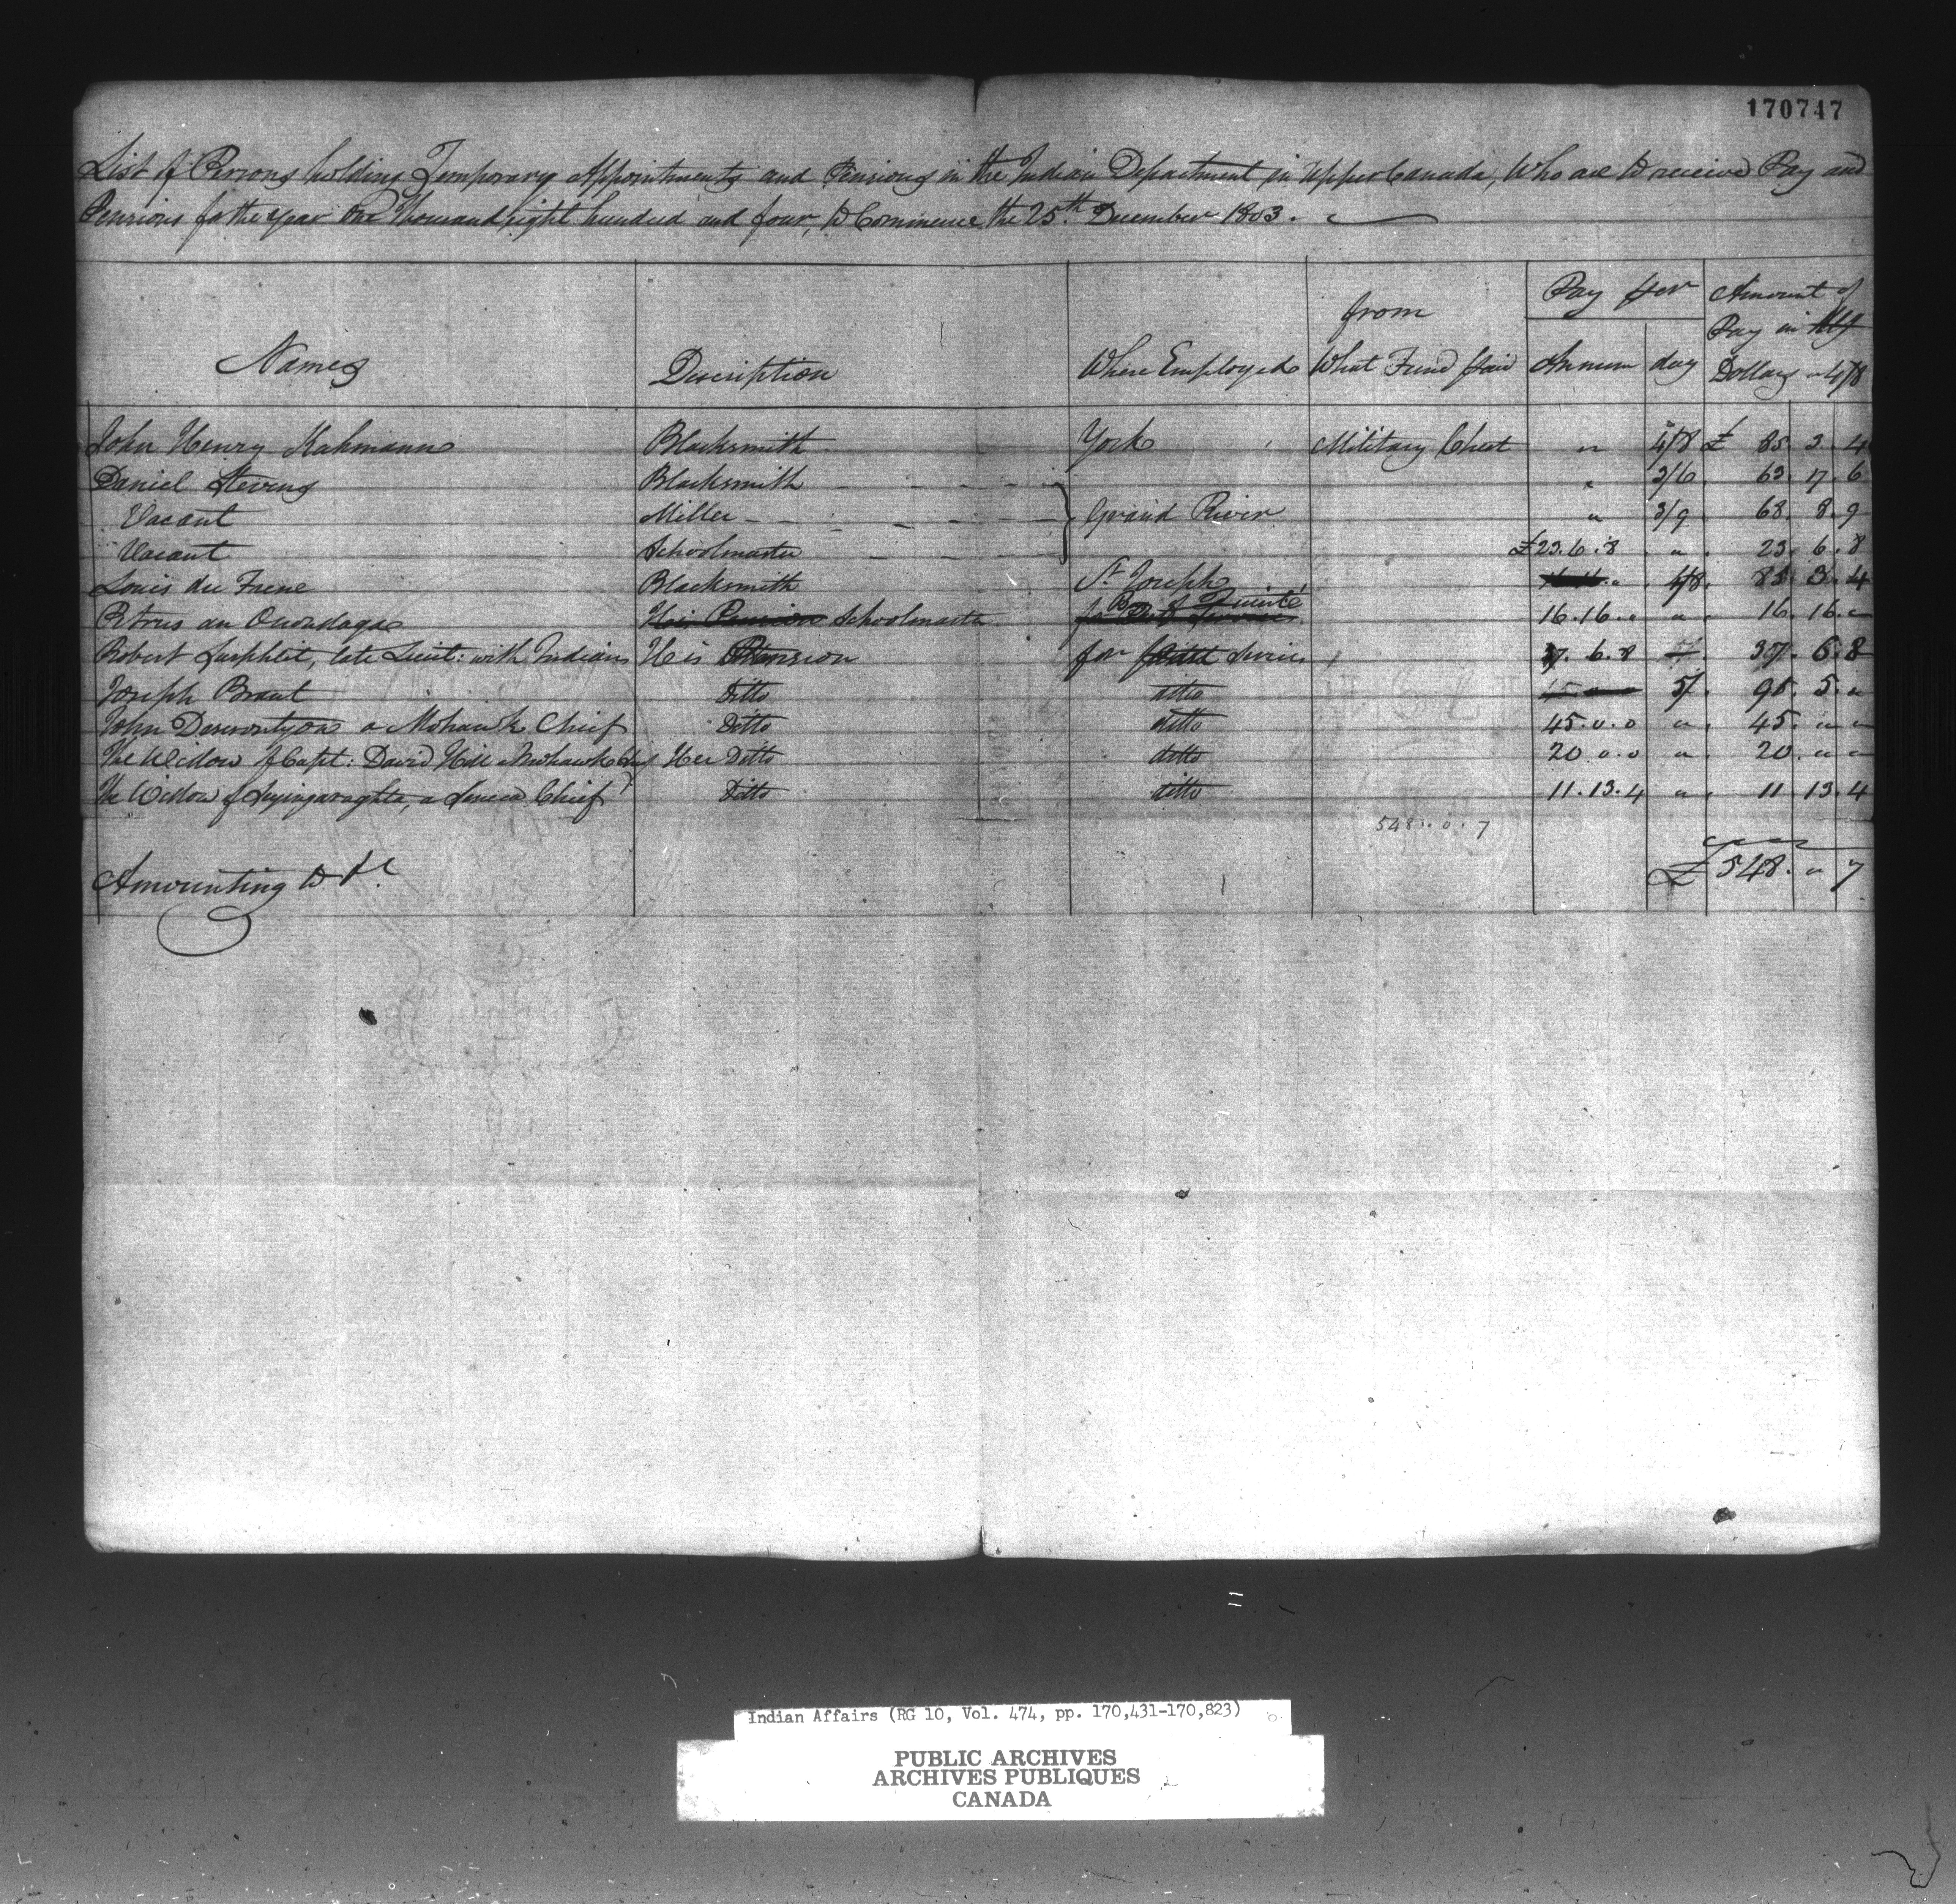 170747
List of Persons holding Temporary Appointments and Pensions in the Indian Department in Upper Canada, Who are to receive Pay and
Pensions for the year One Thousand eight hundred and four, to Commence the 25th December 1803.
Names Discription Where Employed from What Fund paid Pay per Annum day Amount of Pay in Dollars a 4/8
John Henry Kahmann Blacksmith York Military Chest " 4/8 £ 85. 3. 4
Daniel Stevens Blacksmith " 3/6 63. 17. 6
Vacant Miller Grand River " 3/9 68. 8. 9
Vacant Schoolmaster £23.6.8 " 23. 6. 8
Louis du Frene Blacksmith St Joseph 4/8 85. 3. 4
Petrus an Onondaga His Pension Schoolmaster Bay of Quinté 16.16." " 16. 16. "
Robert late Lieut: with Indians His Pension for Services 6.8 37. 6. 8
Joseph Brant Ditto ditto 5/ 91. 5. "
John Deserontyon a Mohawk Chief Ditto ditto 45.0.0 " 45. " "
The Widow of Capt: David Hill a Mohawk Chief Her Ditto ditto 20.0.0 " 20. " "
The Widow of a Seneca Chief Ditto ditto 11.13.4 " 11 13. 4
548..0.7
Amounting to H £548. " 7
Indian Affairs (RG 10, Vol. 474, pp. 170,431-170,823)
PUBLIC ARCHIVES
ARCHIVES PUBLIQUES
CANADA